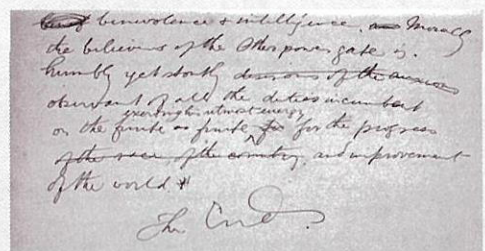 benevolence & intelligence. Morally
the believer of the Other power gate is
humbly yet stoutly desirous of the
observant of all the duties incumbent
exerting his utmost energy
on the finite as finite, for the progress
of the race of the country, and improvement
of the world
The End.